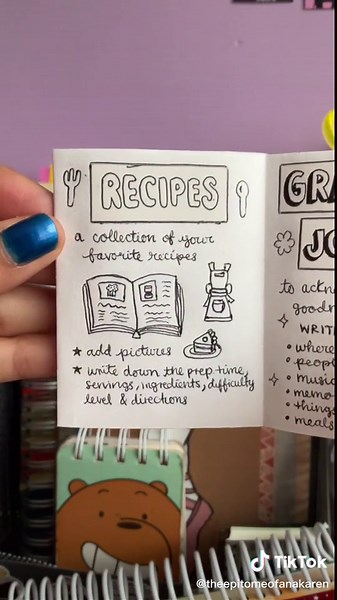 RECIPES
a collection of your
favorite recipes
★ add pictures
★ write down the prep time,
servings, ingredients, difficulty
level & directions
GRA
JO
to ackn
goodn
WRIT
• where
• peopl
• music
• memo
• things
• meals
TikTok
@theepitomeofanakaren